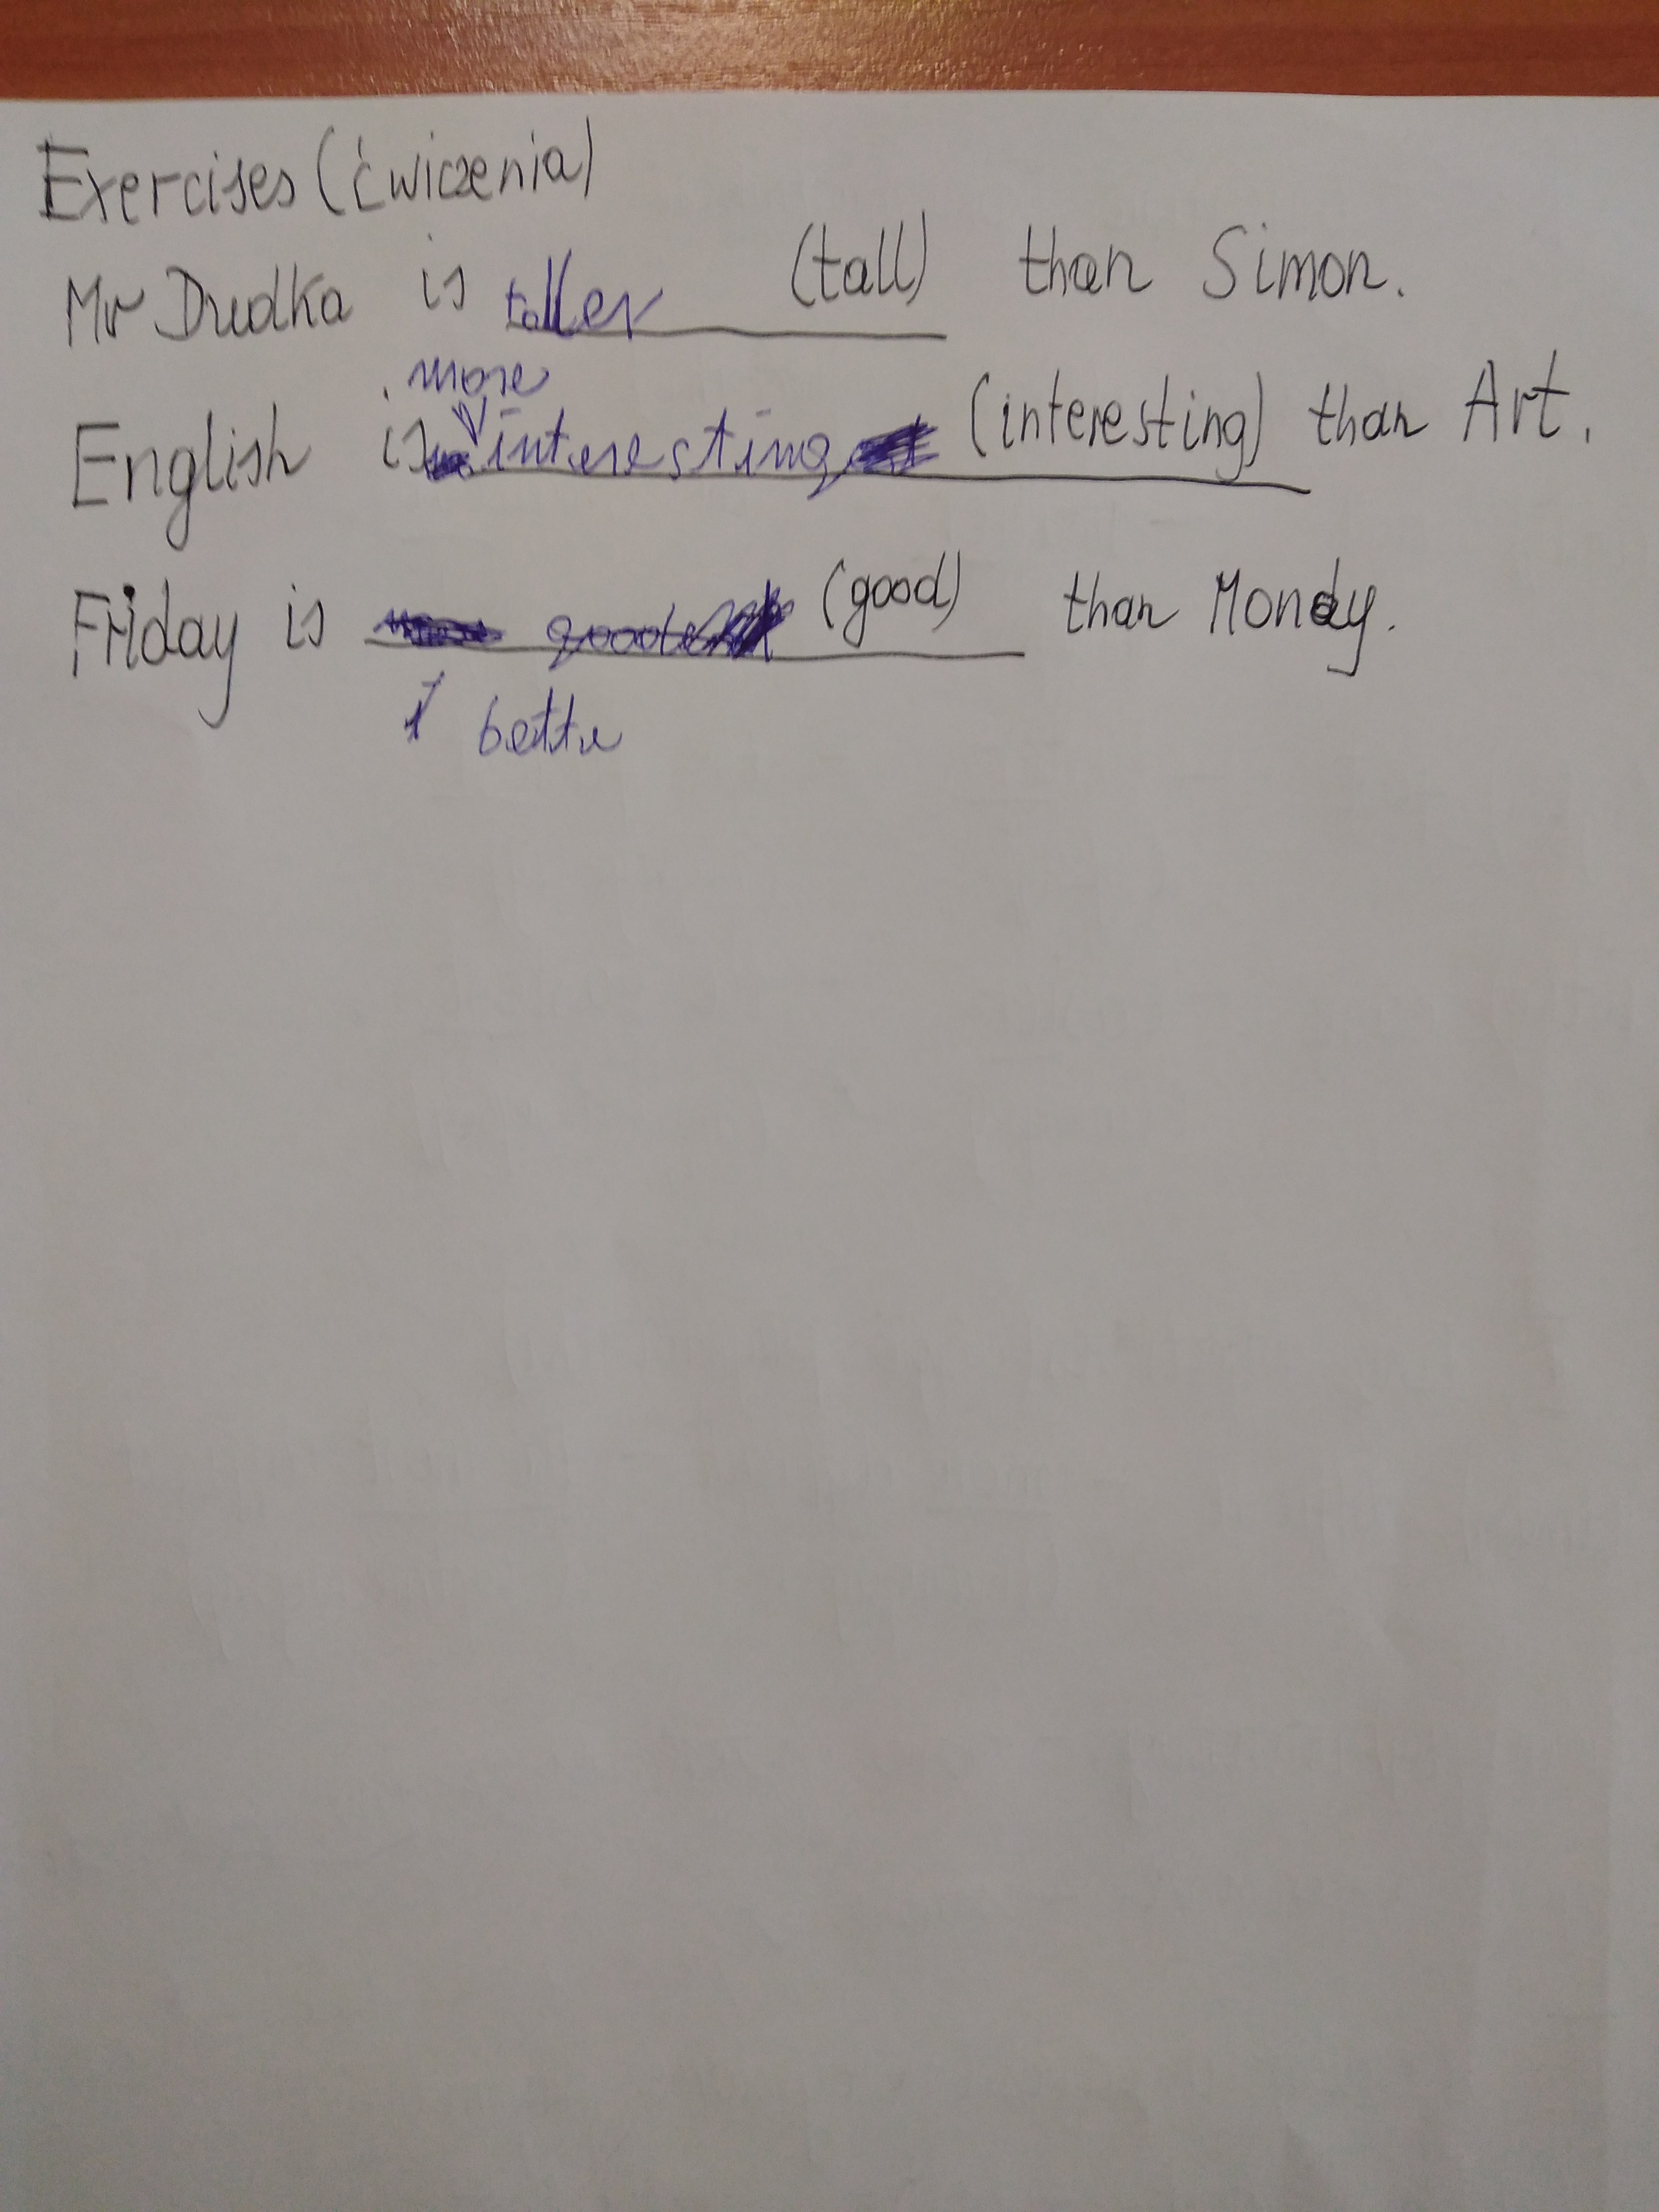 Exercises (ćwiczenia)
Mr Dudka is taller (tall) than Simon.
more
English is interesting (interesting) than Art.
Friday is gooder (good) than Mondy.
bette